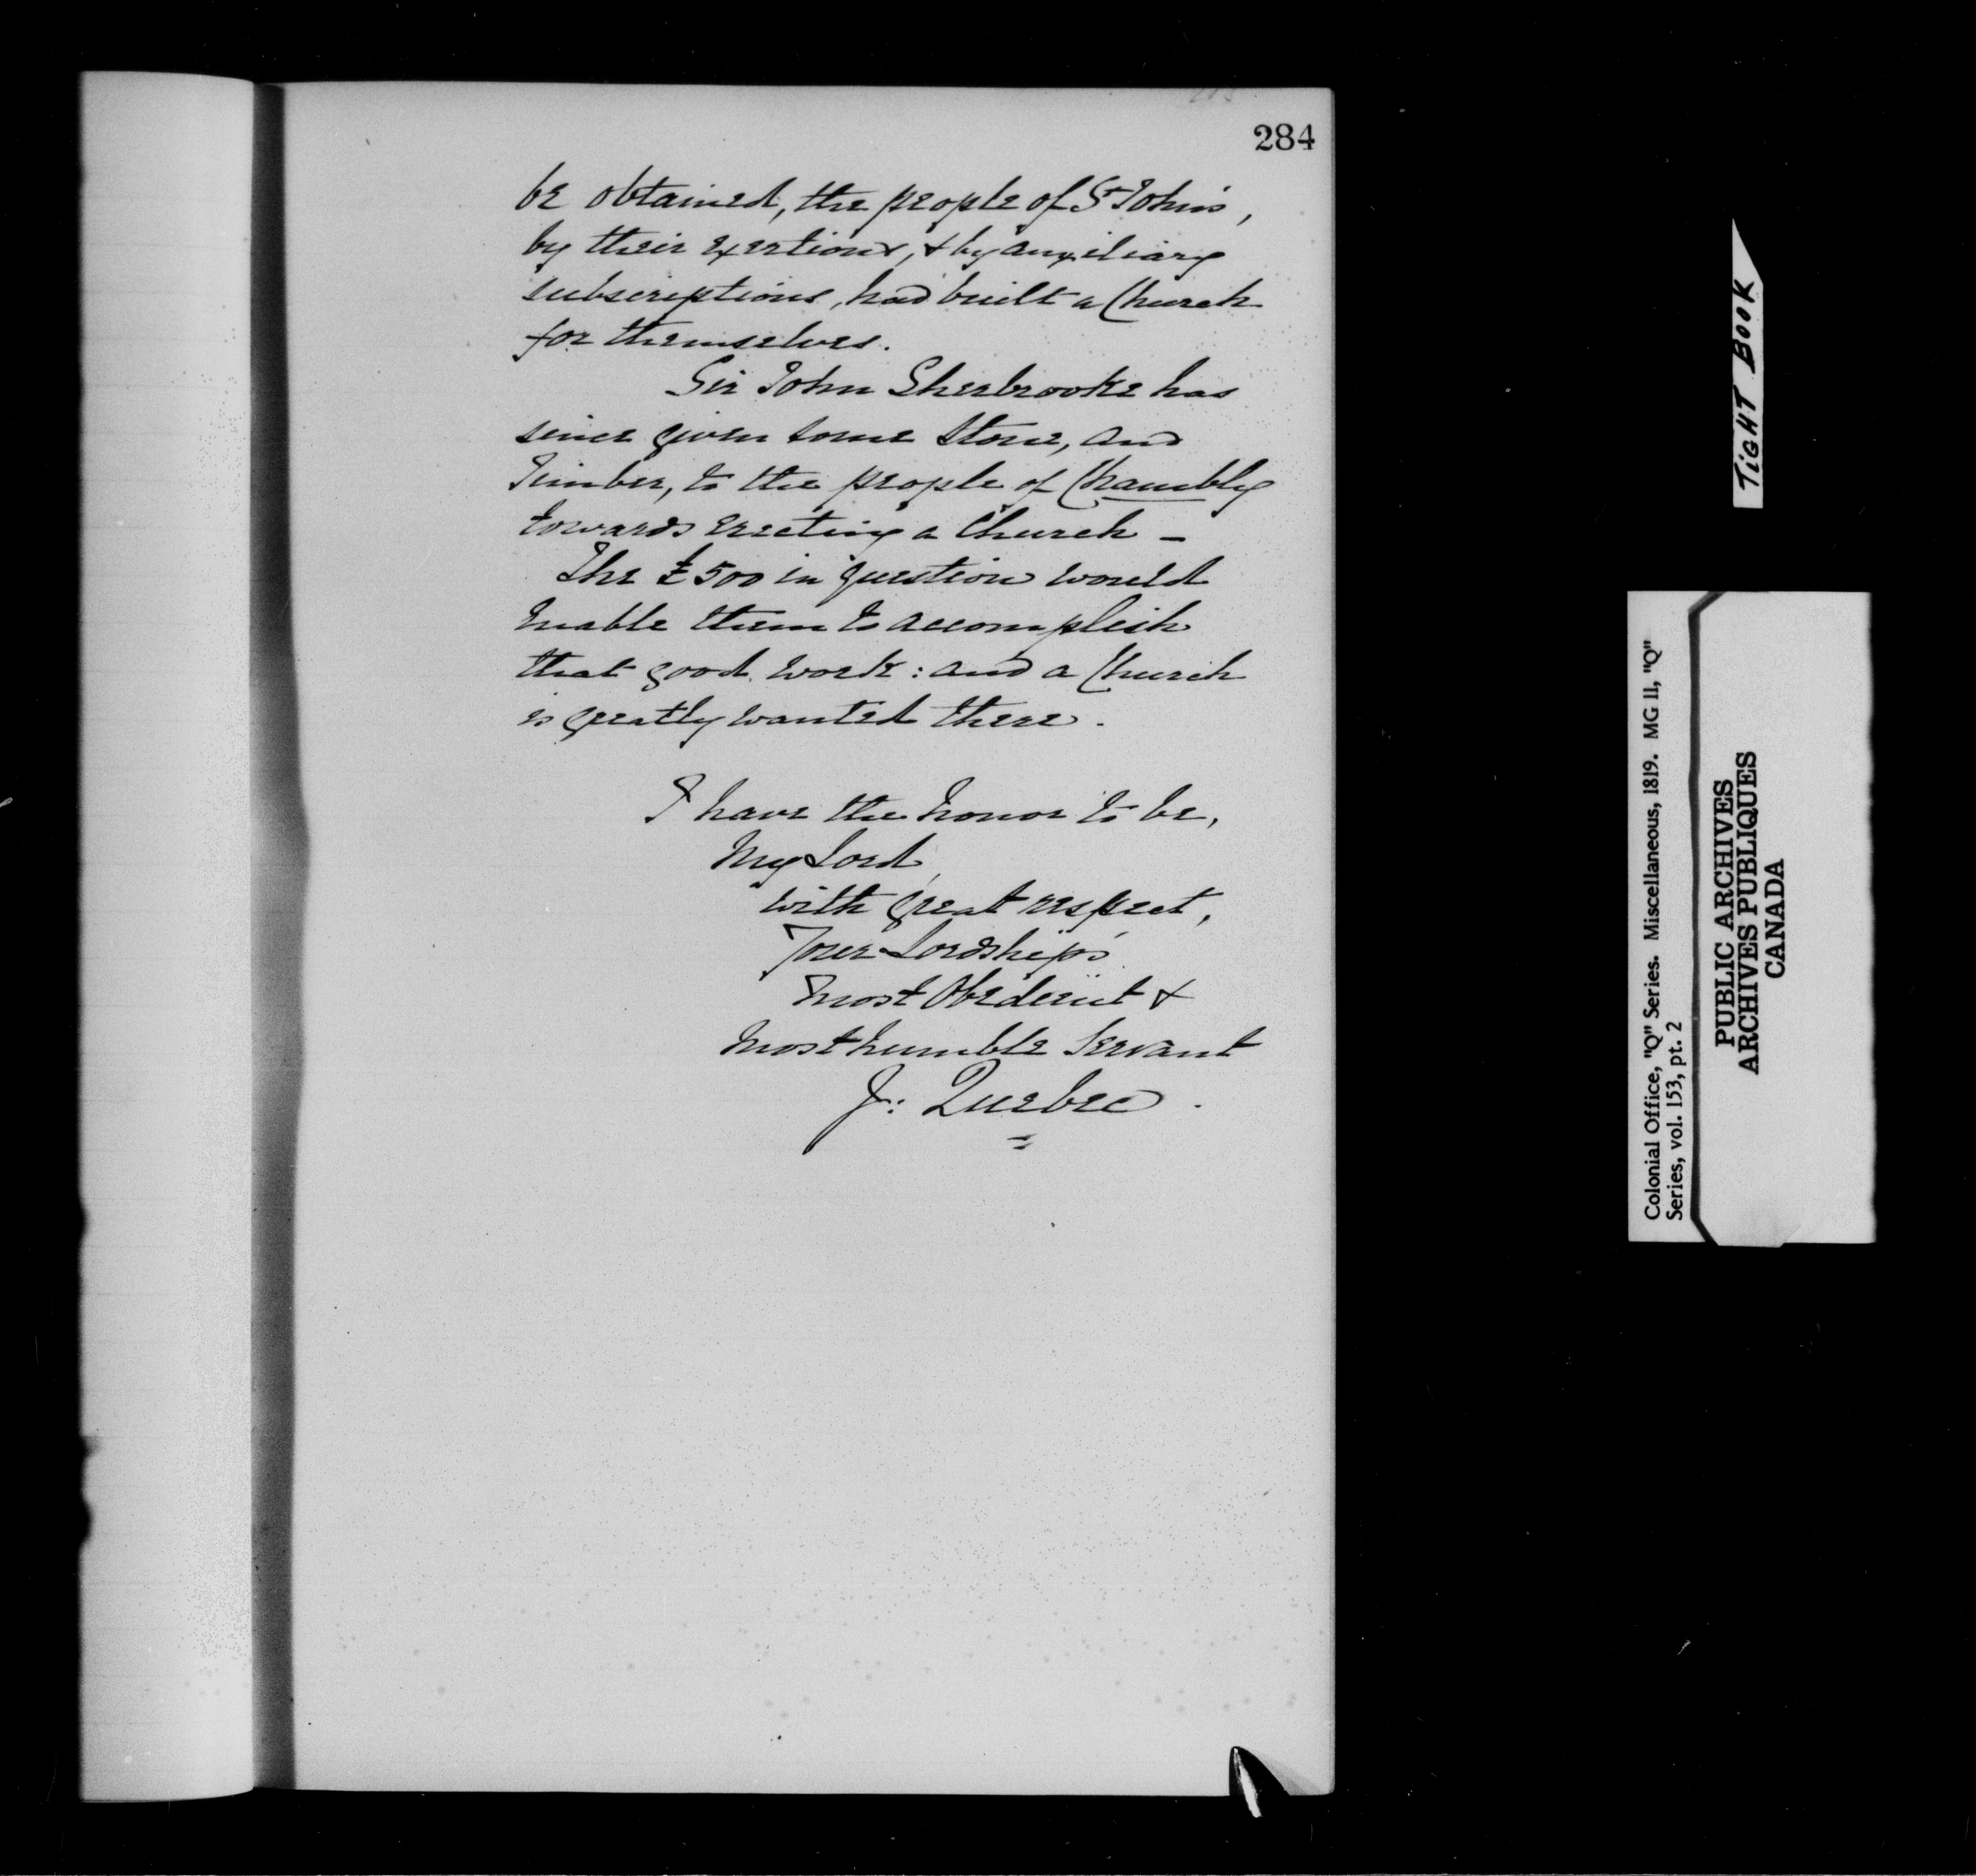 284
be obtained, the people of St John's,
by their exertions, & by auxiliary
subscriptions, had built a Church
for themselves.
Sir John Sherbrooke has
since given some Stone, and
Timber, to the people of Chambly
towards erecting a Church –
The £500 in question would
enable them to accomplish
that good work: and a Church
is greatly wanted there.
I have the honor to be,
My Lord,
with great respect,
Your Lordship's
most Obedient &
most humble Servant
J: Quebec.
TIGHT BOOK
Colonial Office, "Q" Series. Miscellaneous, 1819. MG 11, "Q"
Series, vol. 153, pt. 2
PUBLIC ARCHIVES
ARCHIVES PUBLIQUES
CANADA